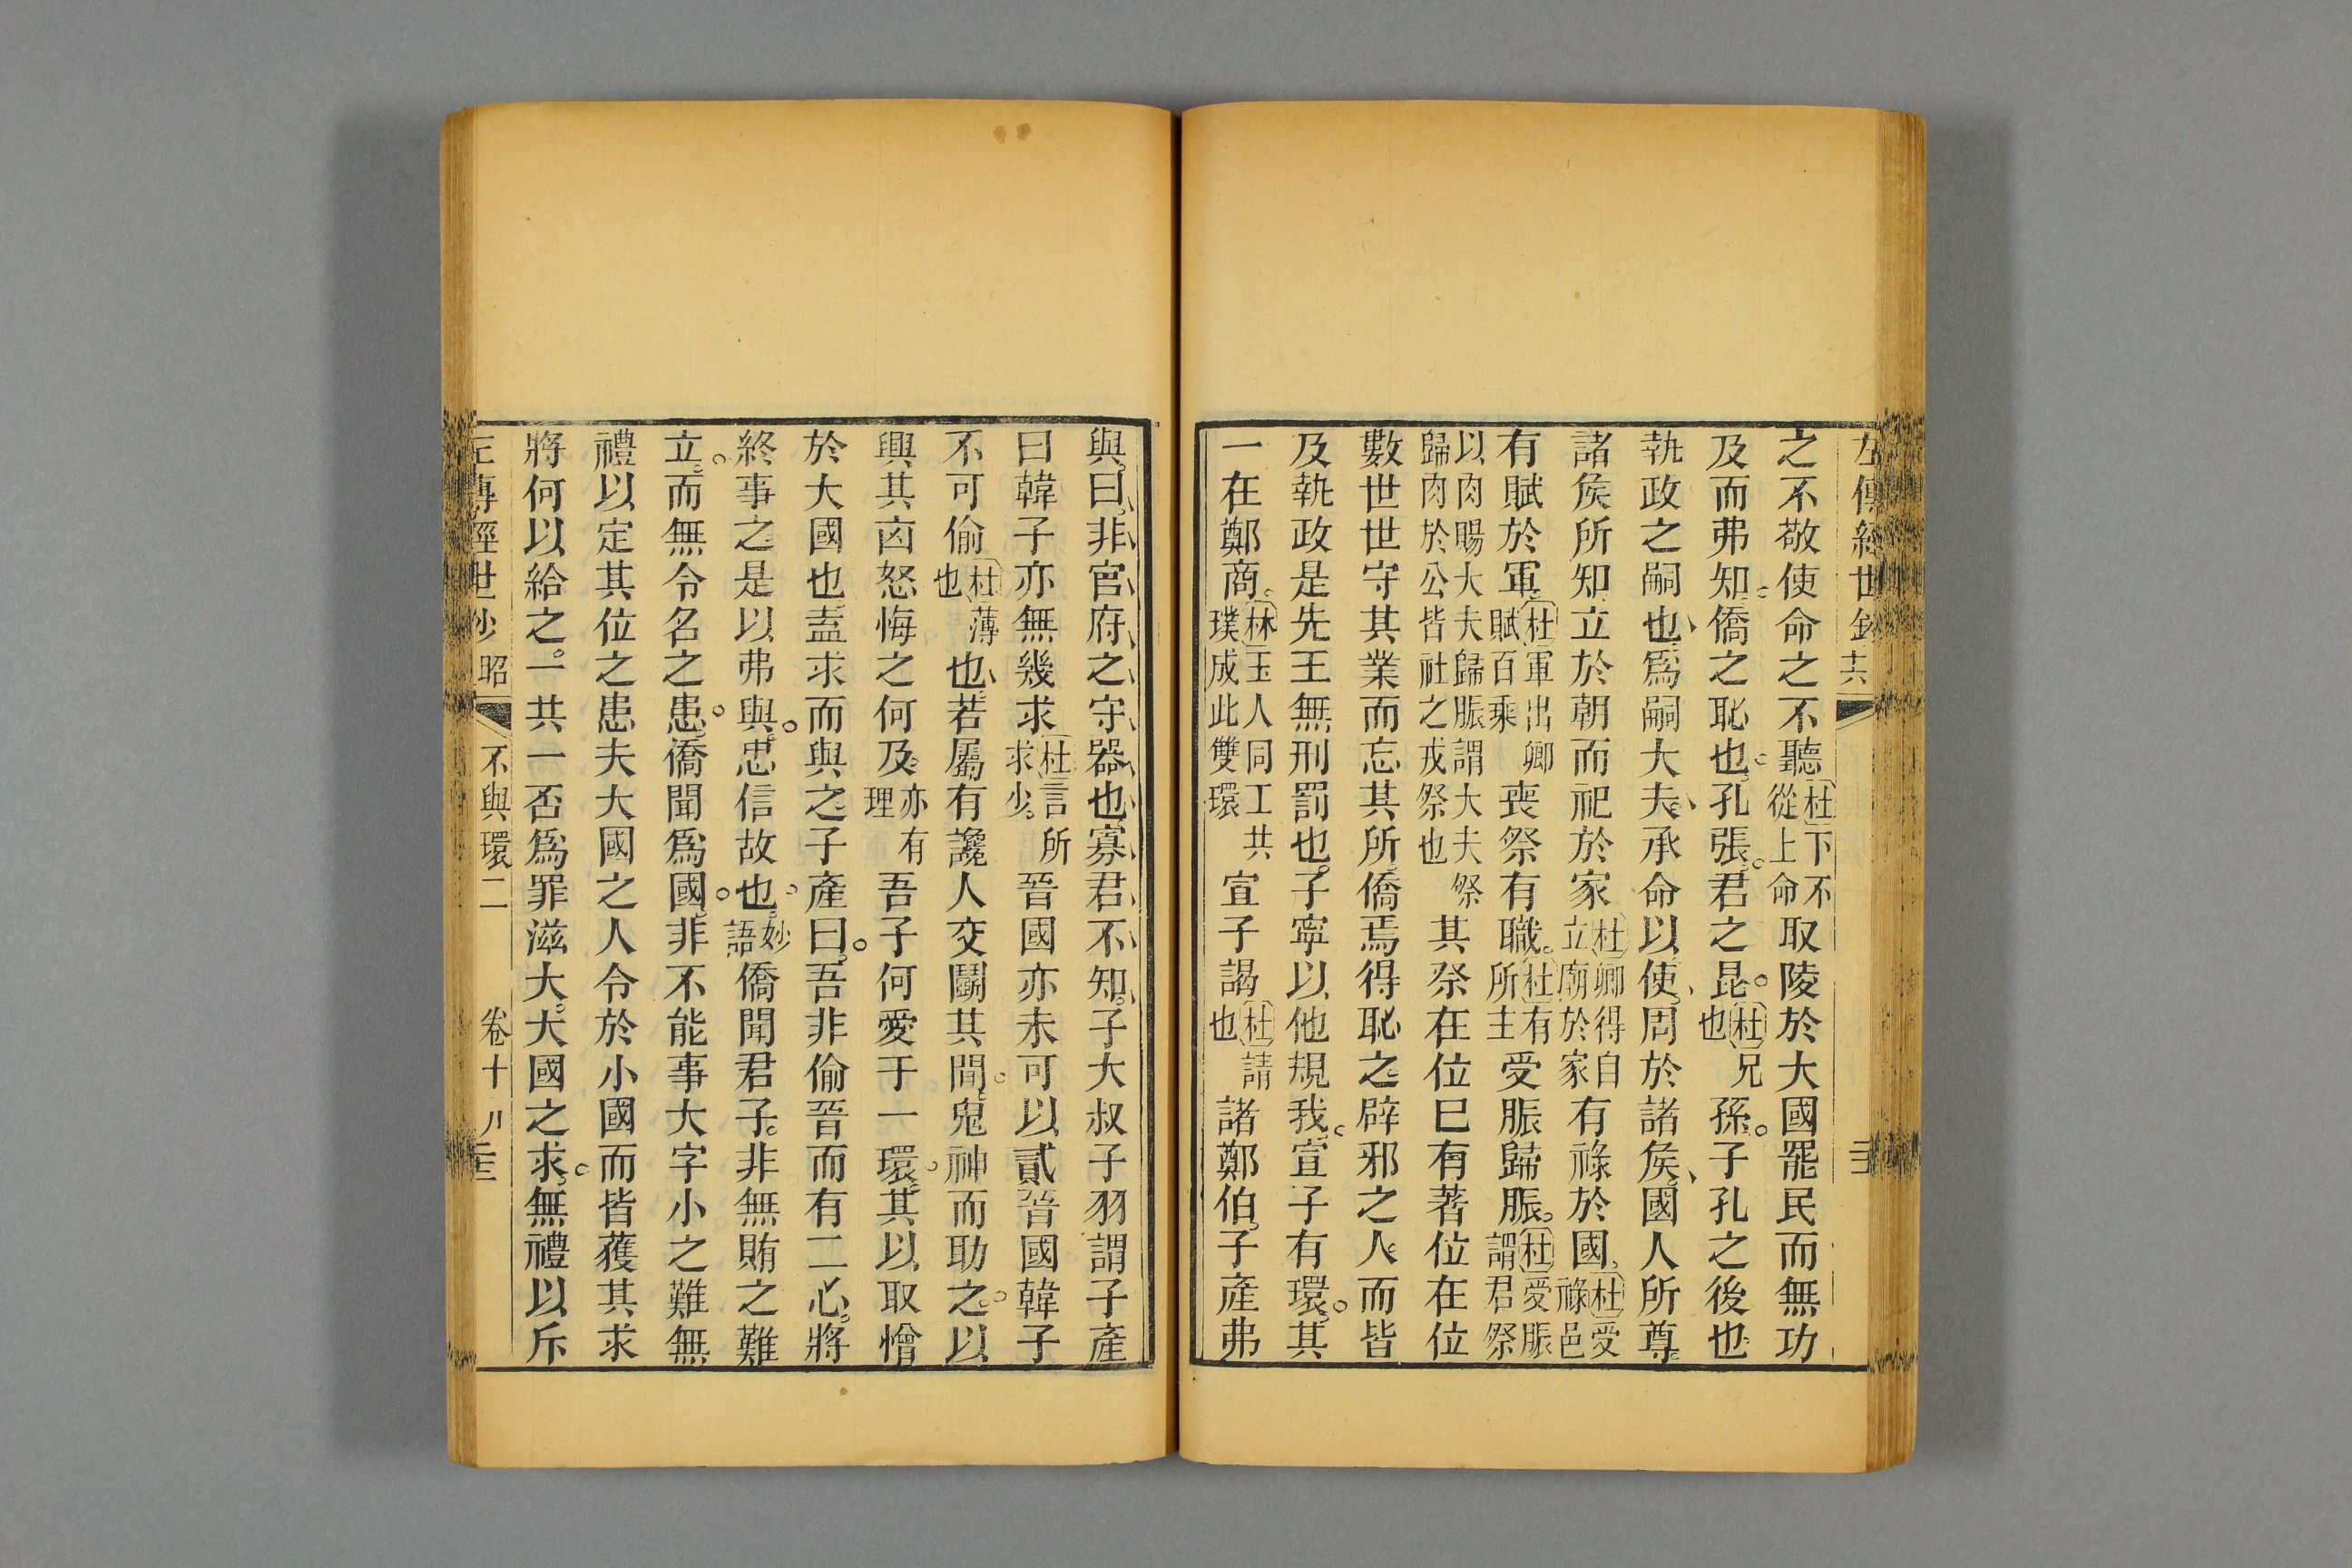 左傳經世鈔
之不敬使命之不聽杜下不從上命取陵於大國罷民而無功
及而弗知僑之恥也孔張君之昆杜兄也孫子孔之後也
執政之嗣也爲嗣大夫承命以使周於諸矦國人所尊
諸矦所知立於朝而祀於家杜卿得自立廟於家有祿於國杜受祿邑
有賦於軍杜軍出卿賦百乘喪祭有職杜有所主受脤歸脤杜愛脤謂君祭
以肉賜大夫歸脤謂大夫祭歸肉於公皆社之戎祭也其祭在位巳有著位在位
數世世守其業而忘其所僑焉得恥之辟邪之人而皆
及執政是先王無刑罰也子寧以他規我宣子有環其
一在鄭商林玉人同工共璞成此雙環宣子謁杜請也諸鄭伯子產弗
與曰非官府之守器也寡君不知子大叔子羽謂子產
曰韓子亦無幾求杜言所求少晉國亦未可以貳晉國韓子
不可偷杜薄也也若屬有讒人交鬭其間鬼神而助之以
興其囪怒悔之何及亦有理吾子何愛于一環其以取憎
於大國也盍求而與之子產曰吾非偷晉而有二心將
終事之是以弗與忠信故也妙語僑聞君子非無賄之難
立而無令名之患僑聞爲國非不能事大字小之難無
禮以定其位之患夫大國之人令於小國而皆獲其求
將何以給之一共一否爲罪滋大大國之求無禮以斥
傳經世鈔 昭 不與環二 卷十